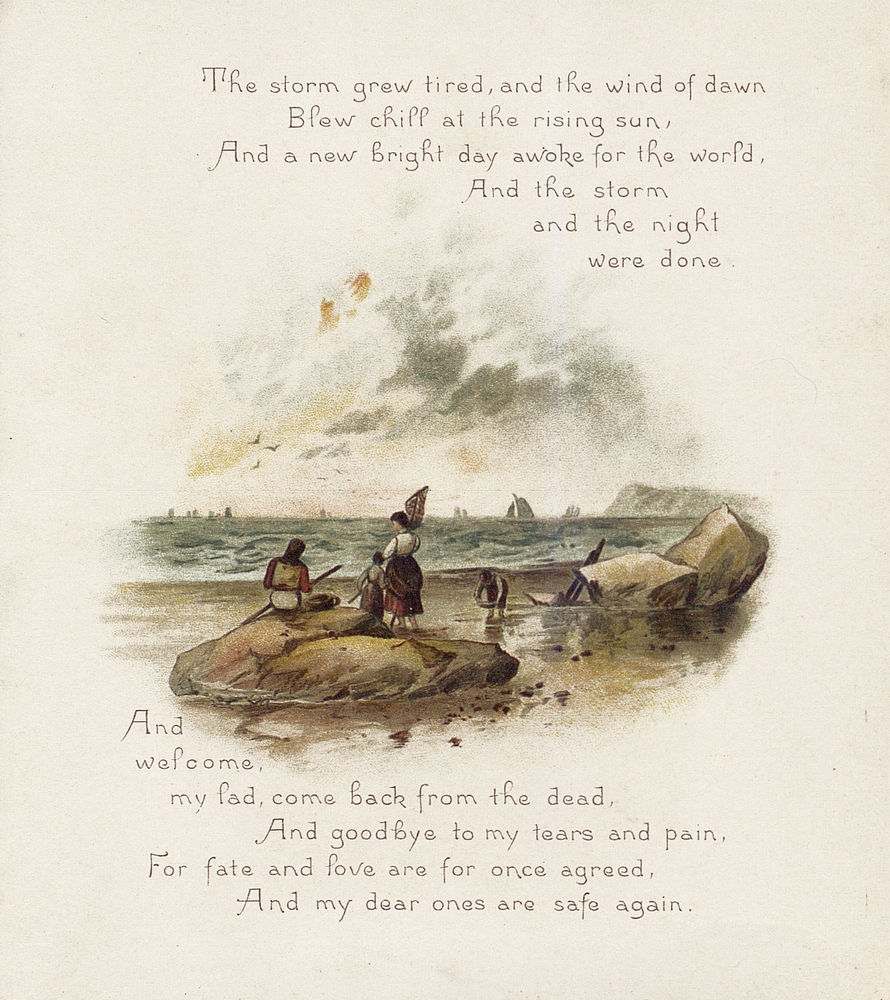 The storm grew tired, and the wind of dawn
Blew chill at the rising sun,
And a new bright day awoke for the world,
And the storm
and the night
were done.
And
welcome,
my lad, come back from the dead,
And goodbye to my tears and pain,
For fate and love are for once agreed,
And my dear ones are safe again.